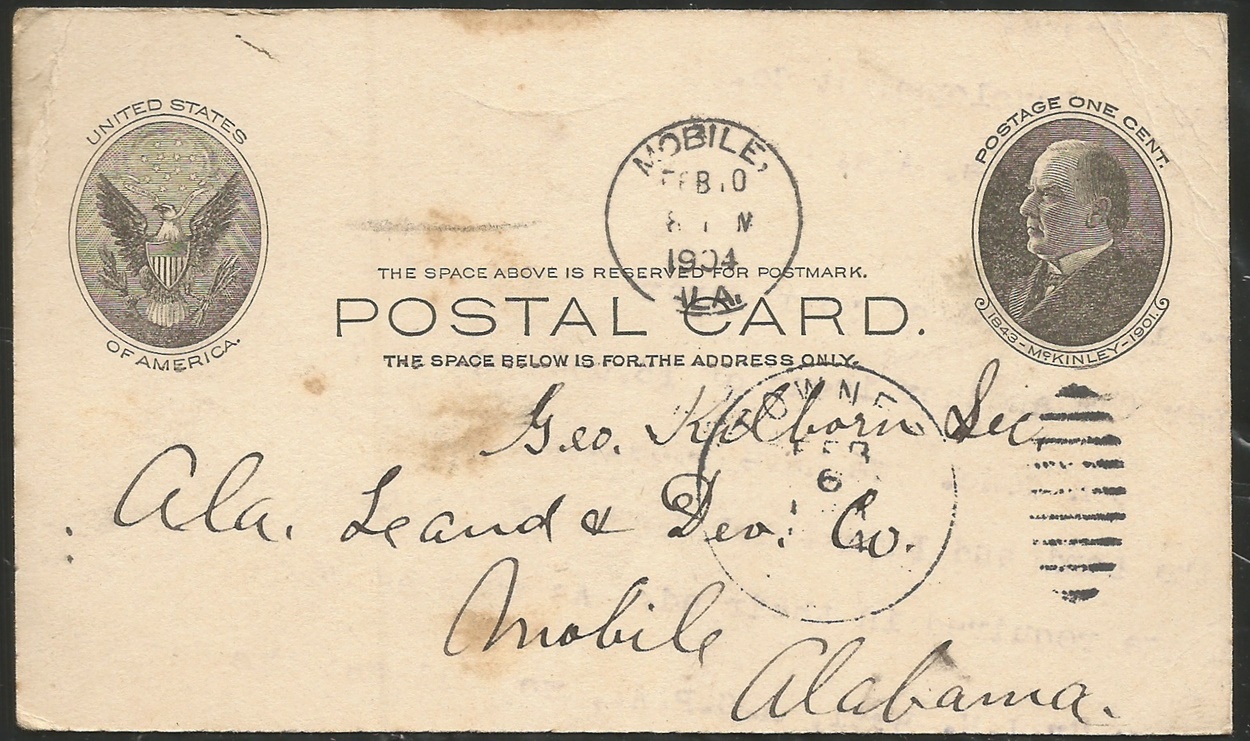 UNITED STATES
OF AMERICA.
POSTAGE ONE CENT.
1843-McKINLEY-1901.
MOBILE,
FEB 10
8 M
1904
THE SPACE ABOVE IS RESERVED FOR POSTMARK.
POSTAL CARD.
THE SPACE BELOW IS FOR THE ADDRESS ONLY.
OWNE
FEB
6
Geo. Kilborn Sec
Ala. Leand & Dev. Co.
Mobile
Alabama.